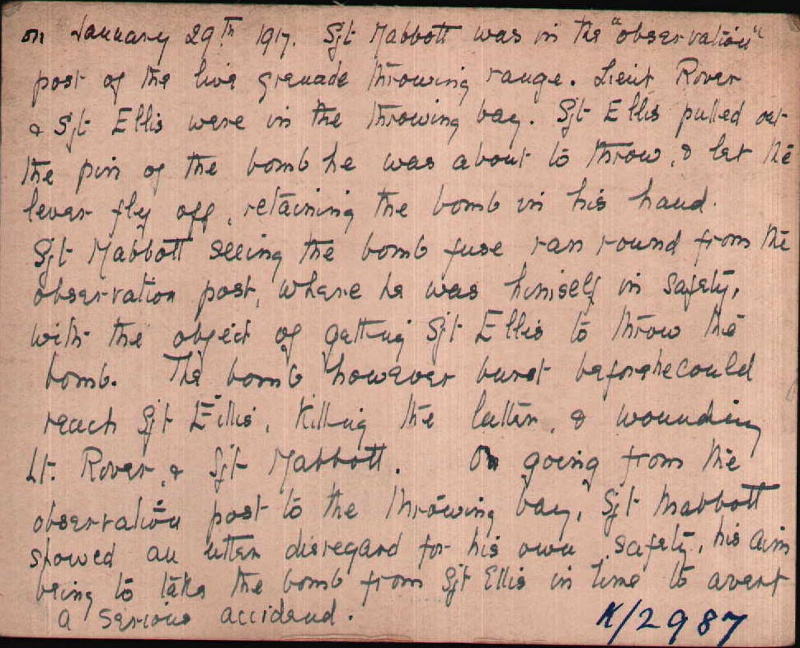 on January 29th 1917. Sjt Mabbott was in the "observation"
post of the live grenade throwing range. Lieut Rover
& Sjt Ellis were in the throwing bay. Sjt Ellis pulled out
the pin of the bomb he was about to throw, & let the
lever fly off, retaining the bomb in his hand.
Sjt Mabbott seeing the bomb fuse ran round from the
observation post, where he was himself in safety,
with the object of getting Sjt Ellis to throw the
bomb. The bomb however burst before he could
reach Sjt Ellis, killing the latter, & wounding
Lt. Rover, & Sjt Mabbott. On going from the
observation post to the throwing bay, Sjt Mabbott
showed an utter disregard for his own safety, his aim
being to take the bomb from Sjt Ellis in time to avert
a serious accidend.
K/2987